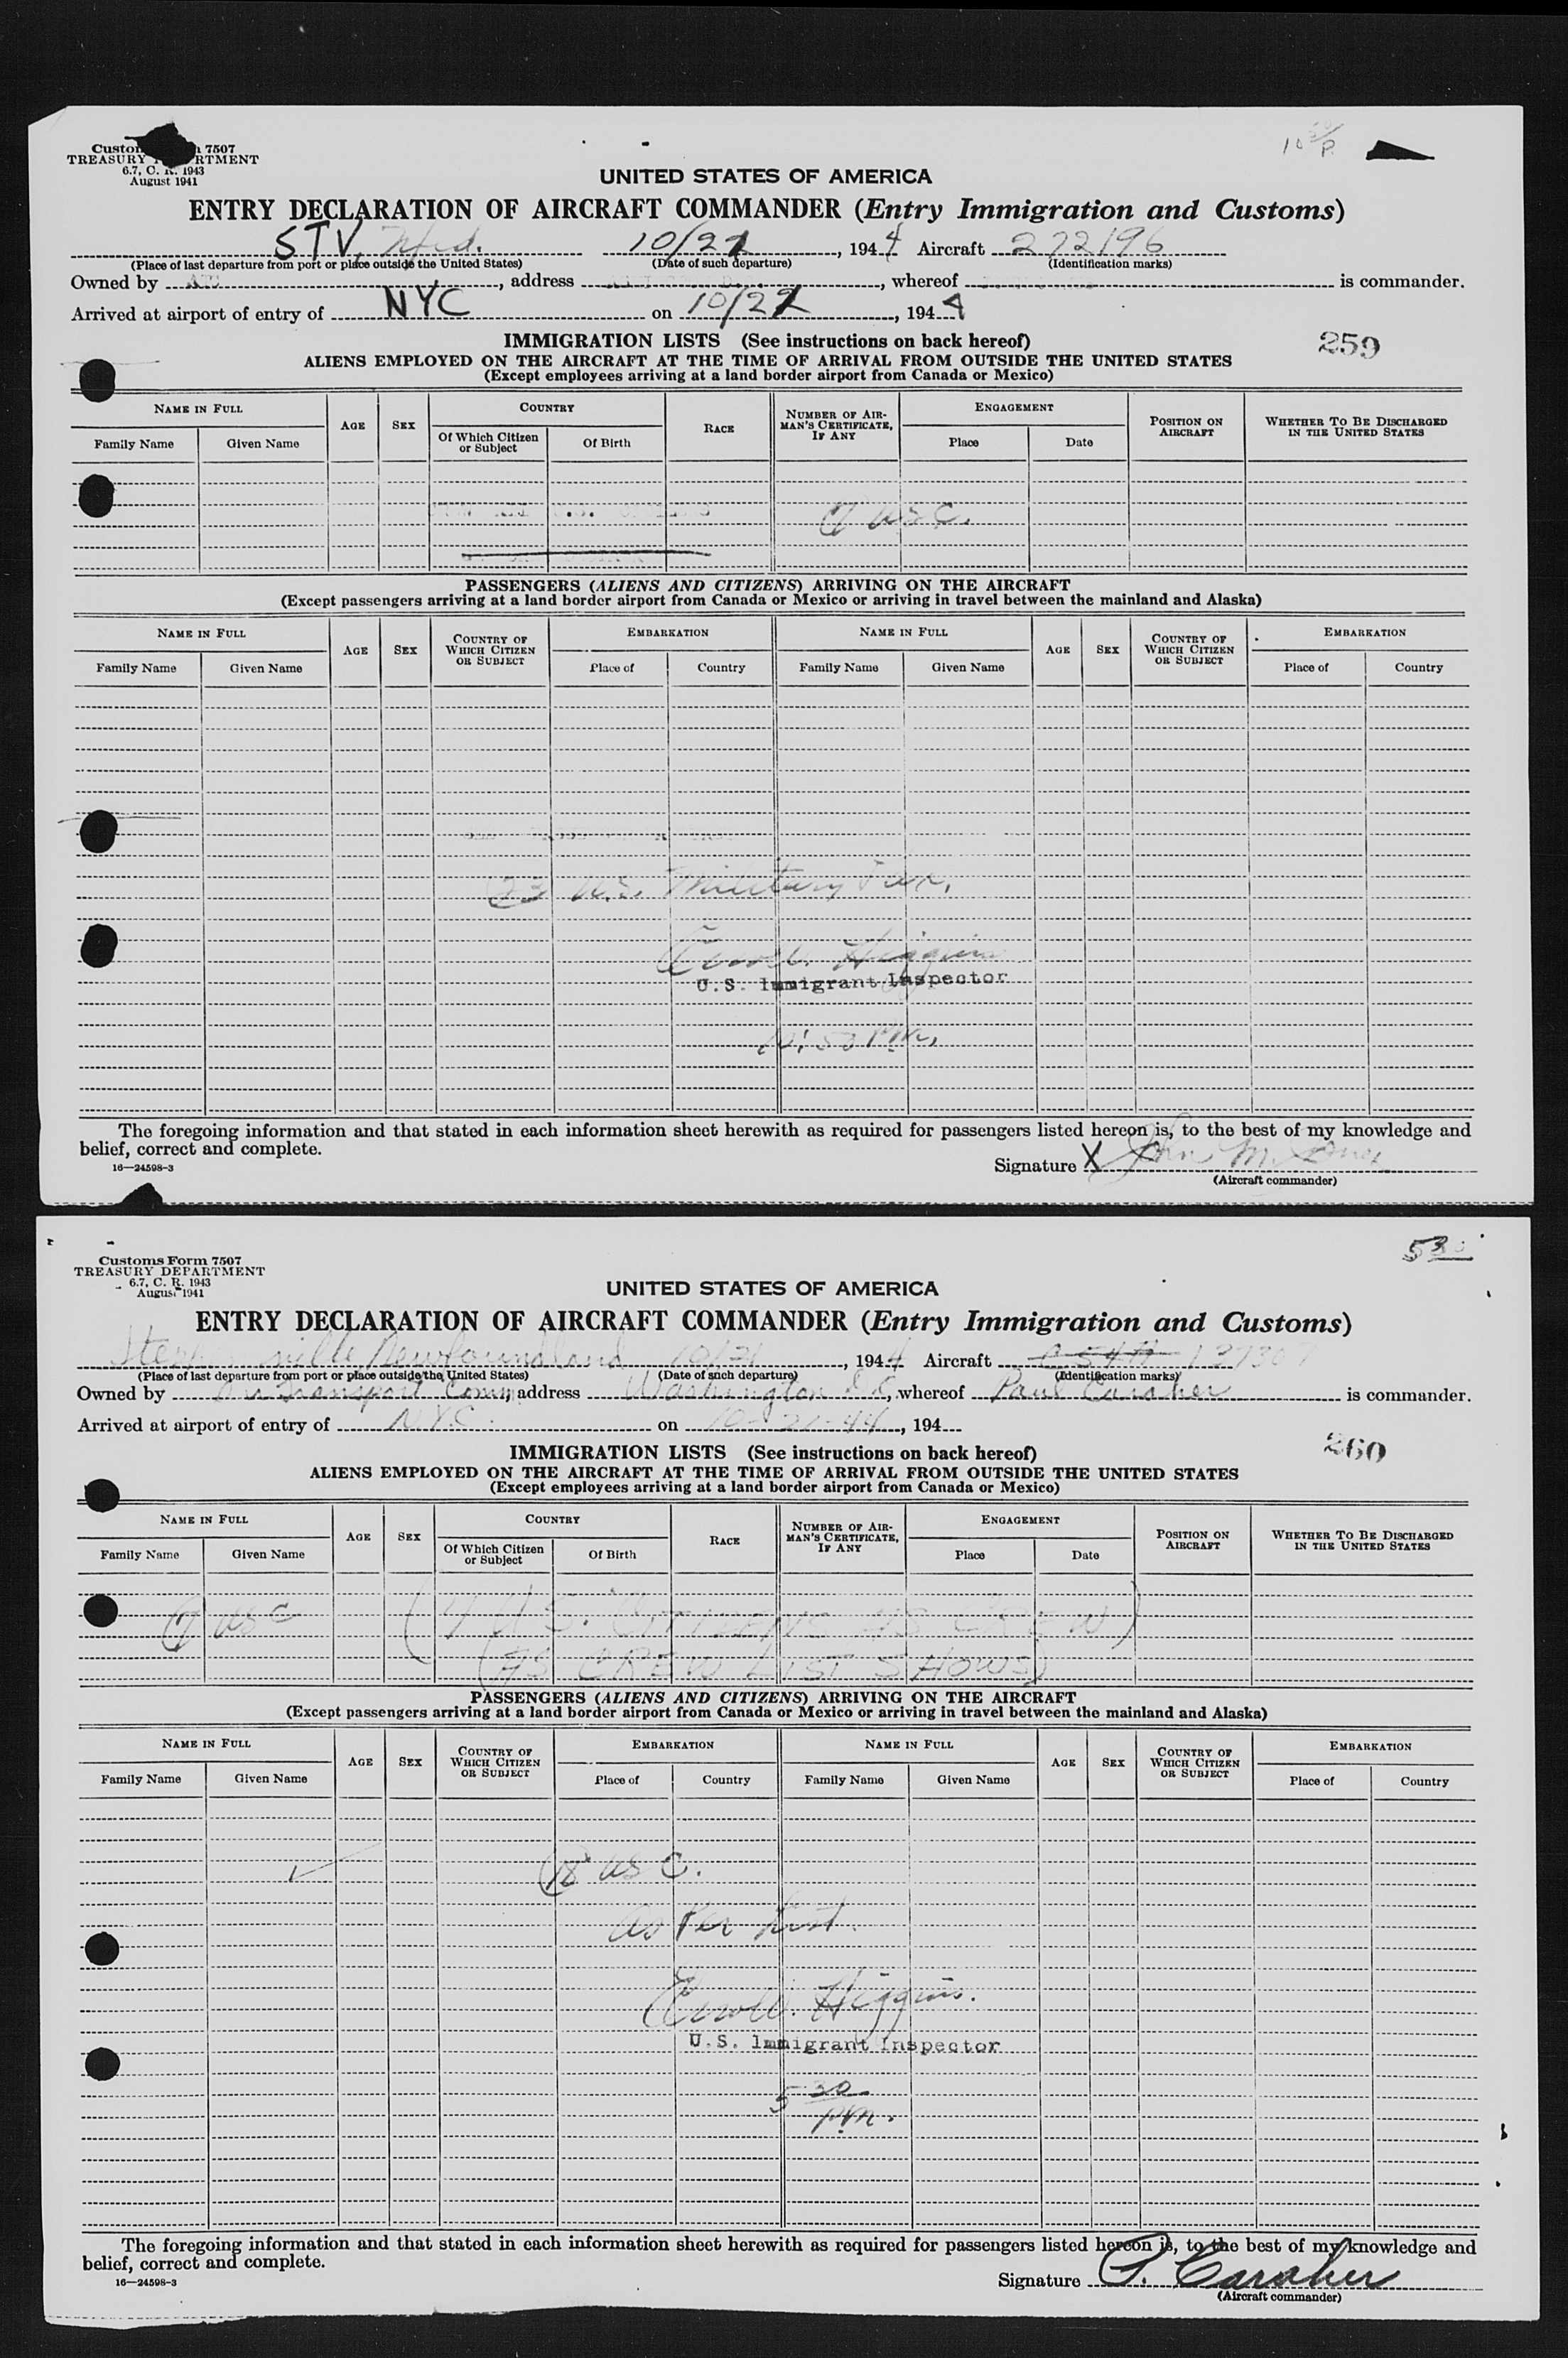 10 50/P.
Customs Form 7507
TREASURY DEPARTMENT
6.7, C. R. 1943
August 1941
UNITED STATES OF AMERICA
ENTRY DECLARATION OF AIRCRAFT COMMANDER (Entry Immigration and Customs)
STV, Nfld. 10/21, 1944 Aircraft 272196
(Place of last departure from port or place outside the United States) (Date of such departure) (Identification marks)
Owned by ATC, address, whereof is commander.
Arrived at airport of entry of NYC on 10/21, 1944
IMMIGRATION LISTS (See instructions on back hereof)
259
ALIENS EMPLOYED ON THE AIRCRAFT AT THE TIME OF ARRIVAL FROM OUTSIDE THE UNITED STATES
(Except employees arriving at a land border airport from Canada or Mexico)
NAME IN FULL AGE SEX COUNTRY RACE NUMBER OF AIRMAN'S CERTIFICATE, IF ANY ENGAGEMENT POSITION ON AIRCRAFT WHETHER TO BE DISCHARGED IN THE UNITED STATES
Family Name Given Name Of Which Citizen or Subject Of Birth Place Date
7 USC.
PASSENGERS (ALIENS AND CITIZENS) ARRIVING ON THE AIRCRAFT
(Except passengers arriving at a land border airport from Canada or Mexico or arriving in travel between the mainland and Alaska)
NAME IN FULL AGE SEX COUNTRY OF WHICH CITIZEN OR SUBJECT EMBARKATION NAME IN FULL AGE SEX COUNTRY OF WHICH CITIZEN OR SUBJECT EMBARKATION
Family Name Given Name Place of Country Family Name Given Name Place of Country
23 U.S. Military Pax.
Higgins
U.S. Immigrant Inspector
10:50 PM.
The foregoing information and that stated in each information sheet herewith as required for passengers listed hereon is, to the best of my knowledge and
belief, correct and complete.
16—24598-3
Signature X John M.
(Aircraft commander)
530
Customs Form 7507
TREASURY DEPARTMENT
6.7, C. R. 1943
August 1941
UNITED STATES OF AMERICA
ENTRY DECLARATION OF AIRCRAFT COMMANDER (Entry Immigration and Customs)
Stephenville, Newfoundland 10/21, 1944 Aircraft C54A 127307
(Place of last departure from port or place outside the United States) (Date of such departure) (Identification marks)
Owned by Air Transport Comm, address Washington D.C., whereof Paul Caraher is commander.
Arrived at airport of entry of N.Y.C. on 10-21-44, 194
IMMIGRATION LISTS (See instructions on back hereof)
260
ALIENS EMPLOYED ON THE AIRCRAFT AT THE TIME OF ARRIVAL FROM OUTSIDE THE UNITED STATES
(Except employees arriving at a land border airport from Canada or Mexico)
NAME IN FULL AGE SEX COUNTRY RACE NUMBER OF AIRMAN'S CERTIFICATE, IF ANY ENGAGEMENT POSITION ON AIRCRAFT WHETHER TO BE DISCHARGED IN THE UNITED STATES
Family Name Given Name Of Which Citizen or Subject Of Birth Place Date
7 USC (7 U.S. CITIZENS AS CREW)
(AS CREW LIST SHOWS)
PASSENGERS (ALIENS AND CITIZENS) ARRIVING ON THE AIRCRAFT
(Except passengers arriving at a land border airport from Canada or Mexico or arriving in travel between the mainland and Alaska)
NAME IN FULL AGE SEX COUNTRY OF WHICH CITIZEN OR SUBJECT EMBARKATION NAME IN FULL AGE SEX COUNTRY OF WHICH CITIZEN OR SUBJECT EMBARKATION
Family Name Given Name Place of Country Family Name Given Name Place of Country
18 USC.
As Per List.
Higgins.
U.S. Immigrant Inspector
5 30 PM.
The foregoing information and that stated in each information sheet herewith as required for passengers listed hereon is, to the best of my knowledge and
belief, correct and complete.
16—24598-3
Signature P. Caraher
(Aircraft commander)